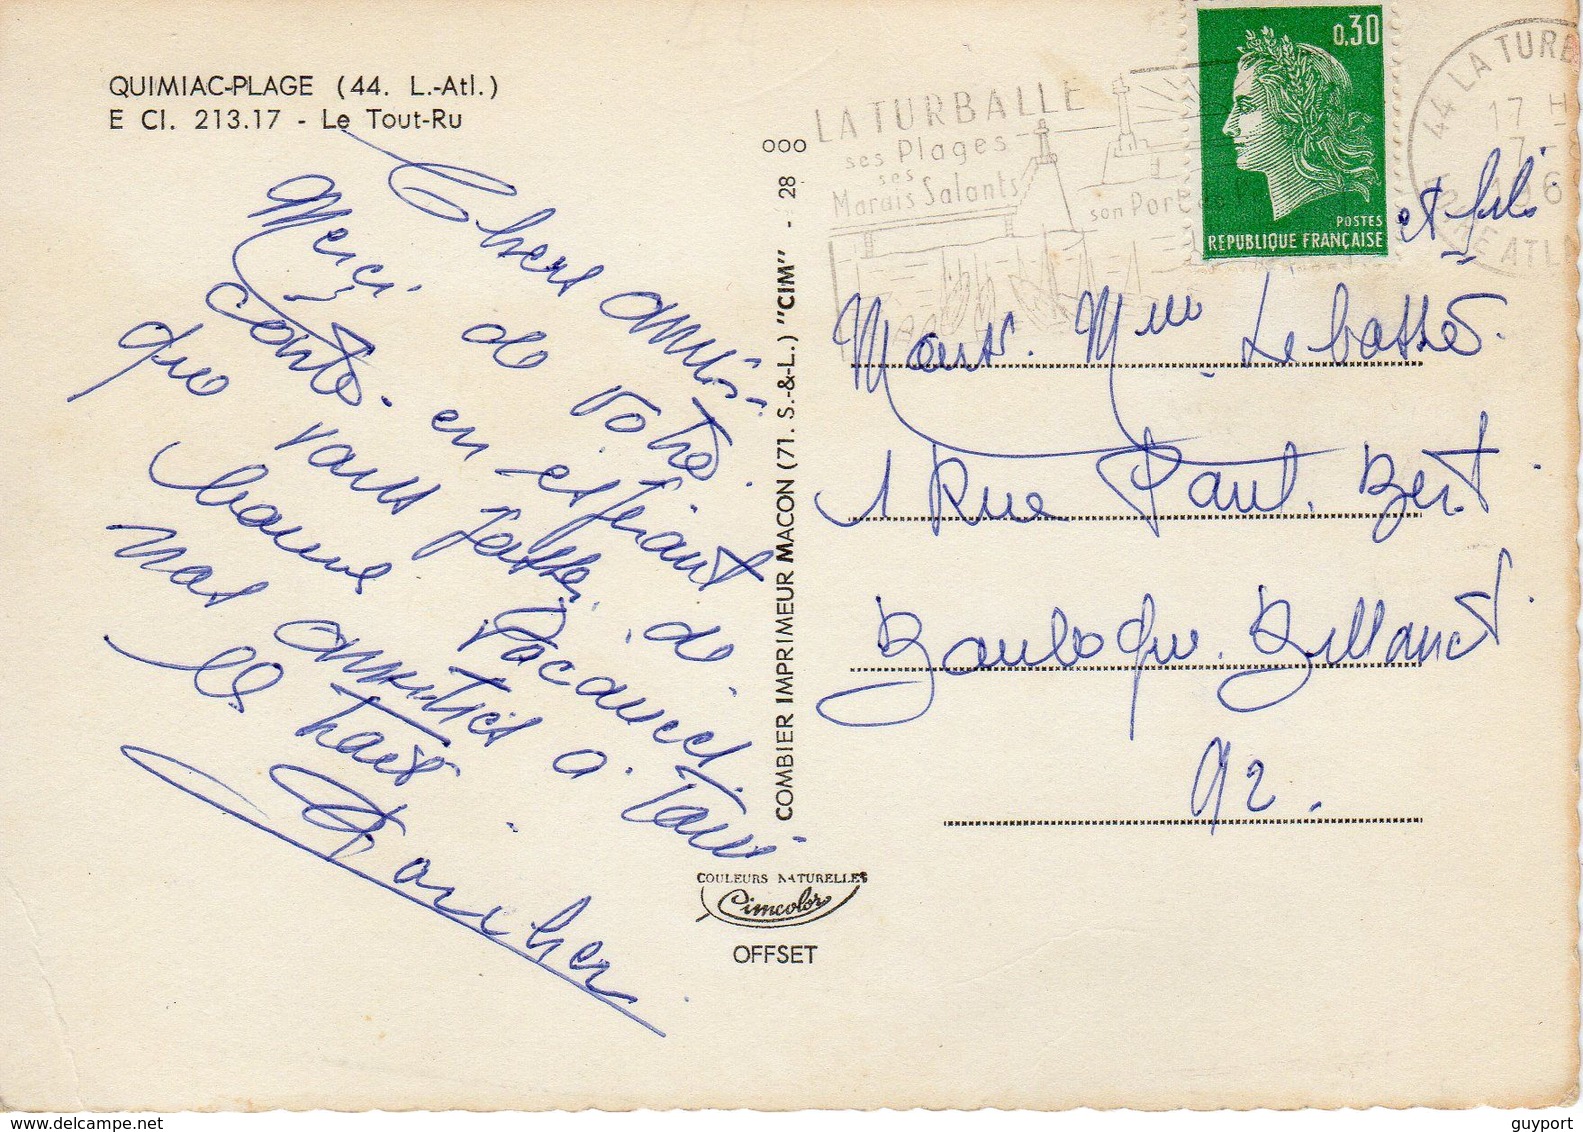 QUIMIAC-PLAGE (44. L.-Atl.)
E CI. 213.17 - Le Tout-Ru
Chers amis.
Merci de votre
carte. en espérant
que vous passer. de
bonne vacances.
nos amitiés a. tous
les trois
COMBIER IMPRIMEUR MACON (71. S.-&-L.) "CIM" - 28 ooo
COULEURS NATURELLES
Cimcolor
OFFSET
LA TURBALLE
ses Plages
ses
Marais Salants
son Port de
0,30
POSTES
REPUBLIQUE FRANÇAISE
44 LA TURB
17 H
7 -
196
LOIRE ATLA
et fils
Monsr. Mme Lebassé.
1 Rue Paul. Bert
Boulogne. Billanct
92.
guyport